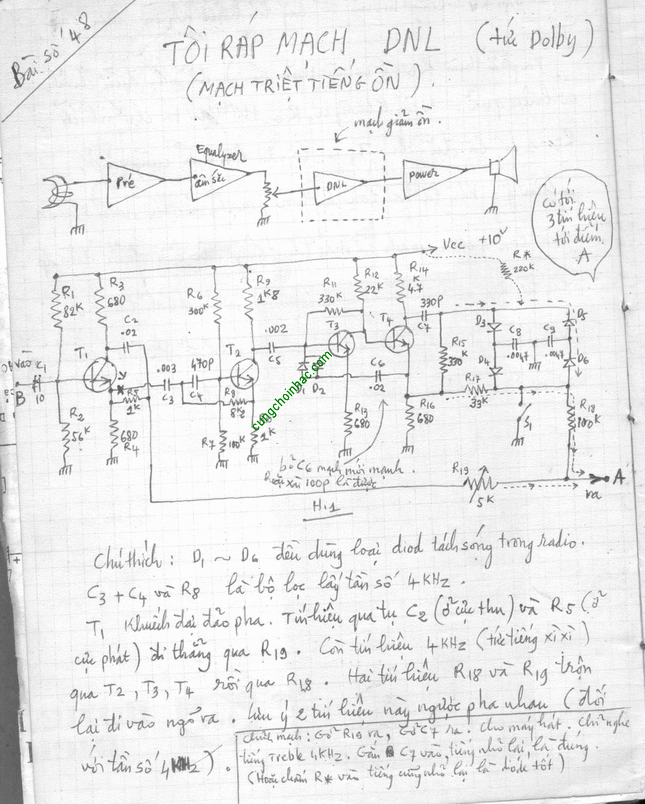 Bài số 48
TÔI RÁP MẠCH DNL (tức Dolby)
(MẠCH TRIỆT TIẾNG ỒN).
mạch giảm ồn.
Equalyzer
Pré
âm sắc
DNL
power
có tới
3 tín hiệu
tới điểm
A
Vcc +10V
R*
220K
R1
82K
R3
680
C2
.02
R6
300K
R9
1K8
.002
C5
R11
330K
R12
22K
R14
4.7
330P
C7
T1
T2
T3
T4
vào
C1
B
10
R5
1K
.003
C3
470P
C4
R8
8K2
D1
D2
C6
.02
R15
330K
D3
D4
C8
.0047
C9
.0047
D5
D6
R17
33K
S1
R18
100K
R2
56K
680
R4
R7
100K
1K
R13
680
R16
680
bỏ C6 mạch mới mạnh.
xìu 100P là được
R19
5K
A
ra
H.1
cungchoinhac.com
Chú thích : D1 ~ D6 đều dùng loại diod tách sóng trong radio.
C3 + C4 và R8 là bộ lọc lấy tần số 4 KHz.
T1 khuếch đại đảo pha. Tín hiệu qua tụ C2 (ở cực thu) và R5 (ở
cực phát) đi thẳng qua R19. Còn tín hiệu 4KHz (tức tiếng xì xì)
qua T2, T3, T4 rồi qua R18. Hai tín hiệu R18 và R19 trộn
lại đi vào ngõ ra. Lưu ý 2 tín hiệu này ngược pha nhau (đối
với tần số 4KHz).
chỉnh mạch : Gỡ R19 ra, Gỡ C7 ra. cho máy hát. chỉ nghe
tiếng treble 4KHz. Gắn C7 vào, tiếng nhỏ lại là đúng.
(Hoặc chấm R* vào tiếng cũng nhỏ lại là diode tốt)